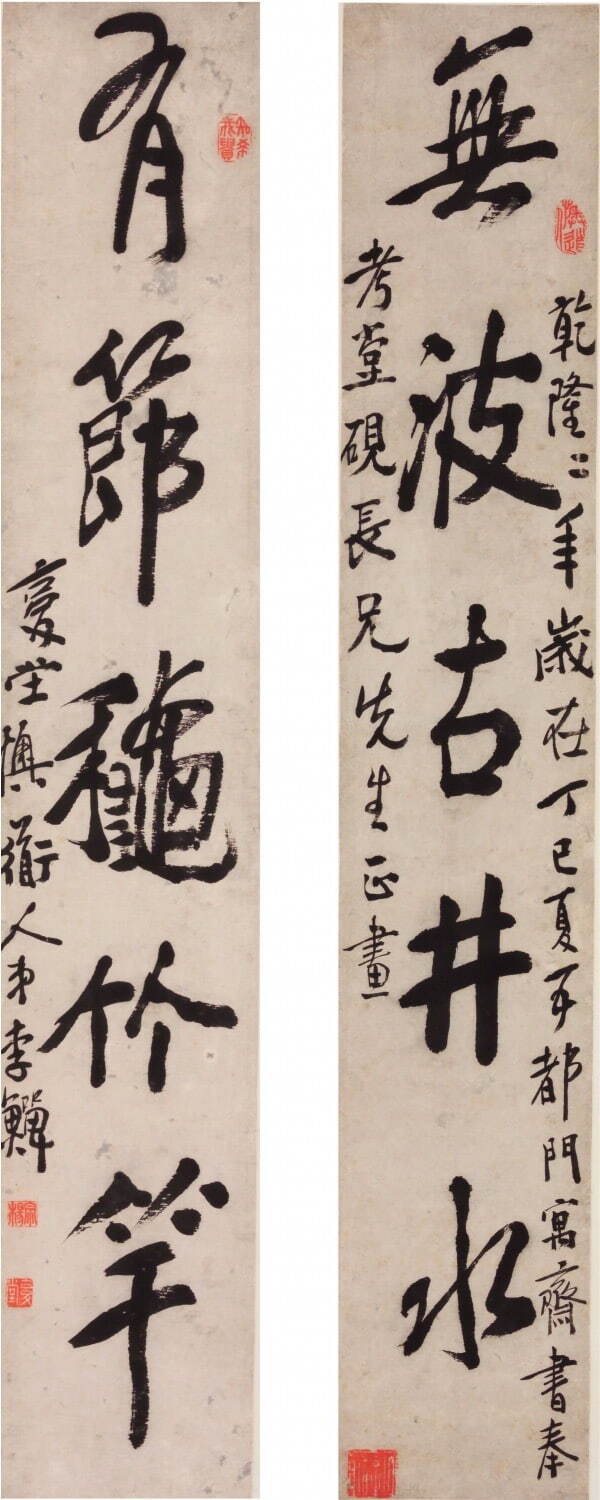 乾隆二年歲在丁巳夏于都門寓齋書奉
無波古井水
考堂硯長兄先生正畫
知希我貴
有節穐竹竿
复堂懊衜人弟李鱓